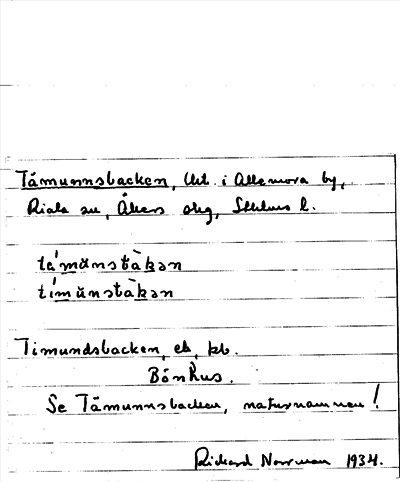 Tämunnsbacken, lht. i Allemora by,
Riala sn, Åkers skg, Sthlms l.
tä́mŭnstàkən
tímŭnstàkən
Timundsbacken, ek, kb.
Bönhus.
Se Tämunnsbacken, naturnamnen!
Rickard Norrman 1934.